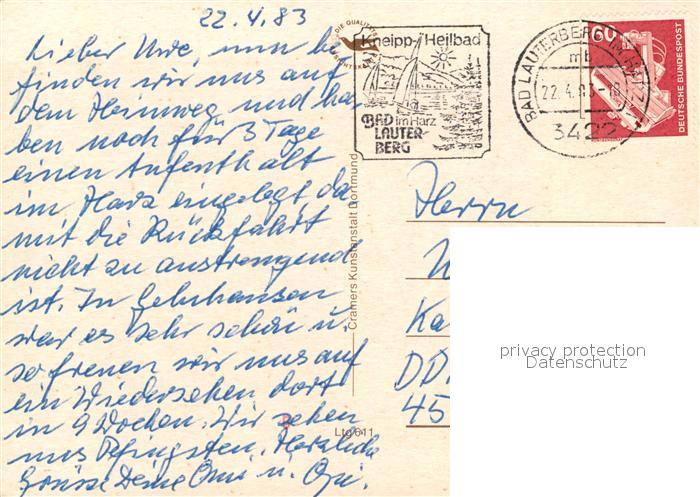 22.4.83
Lieber Uwe, nun be
finden wir uns auf
dem Heimweg und ha-
ben noch für 3 Tage
einen Aufenthalt
im Harz eingelegt, da-
mit die Rückfahrt
nicht zu anstrengend
ist. In Gelnhausen
war es sehr schön u.
so freuen wir uns auf
ein Wiedersehen dort
in 9 Wochen. Wir sehen
uns Pfingsten. Herzliche
Grüsse Deine Omi u. Opi.
Cramers Kunstanstalt Dortmund
Ltg 611
DIE QUALITÄTS
Kneipp-Heilbad
BAD im Harz
LAUTER
BERG
BAD LAUTERBERG IM HARZ
mb
22.4.83-18
3422
60
DEUTSCHE BUNDESPOST
Herrn
Ka
DD
45
privacy protection
Datenschutz